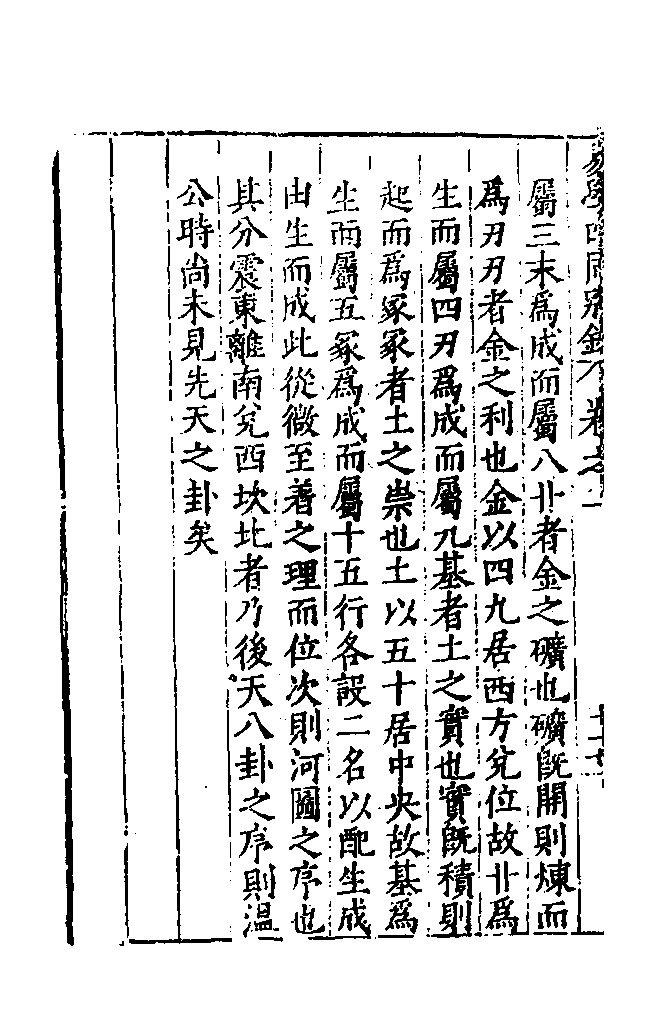 易學四同別錄卷之一
屬三末爲成而屬八卝者金之礦也礦旣開則煉而
爲刃刃者金之利也金以四九居西方兌位故卝爲
生而屬四刃爲成而屬九基者土之實也實旣積則
起而爲冢冢者土之祟也土以五十居中央故基爲
生而屬五冢爲成而屬十五行各設二名以配生成
由生而成此從微至著之理而位次則河圖之序也
其分震東離南兌西坎北者乃後天八卦之序則溫
公時尚未見先天之卦矣